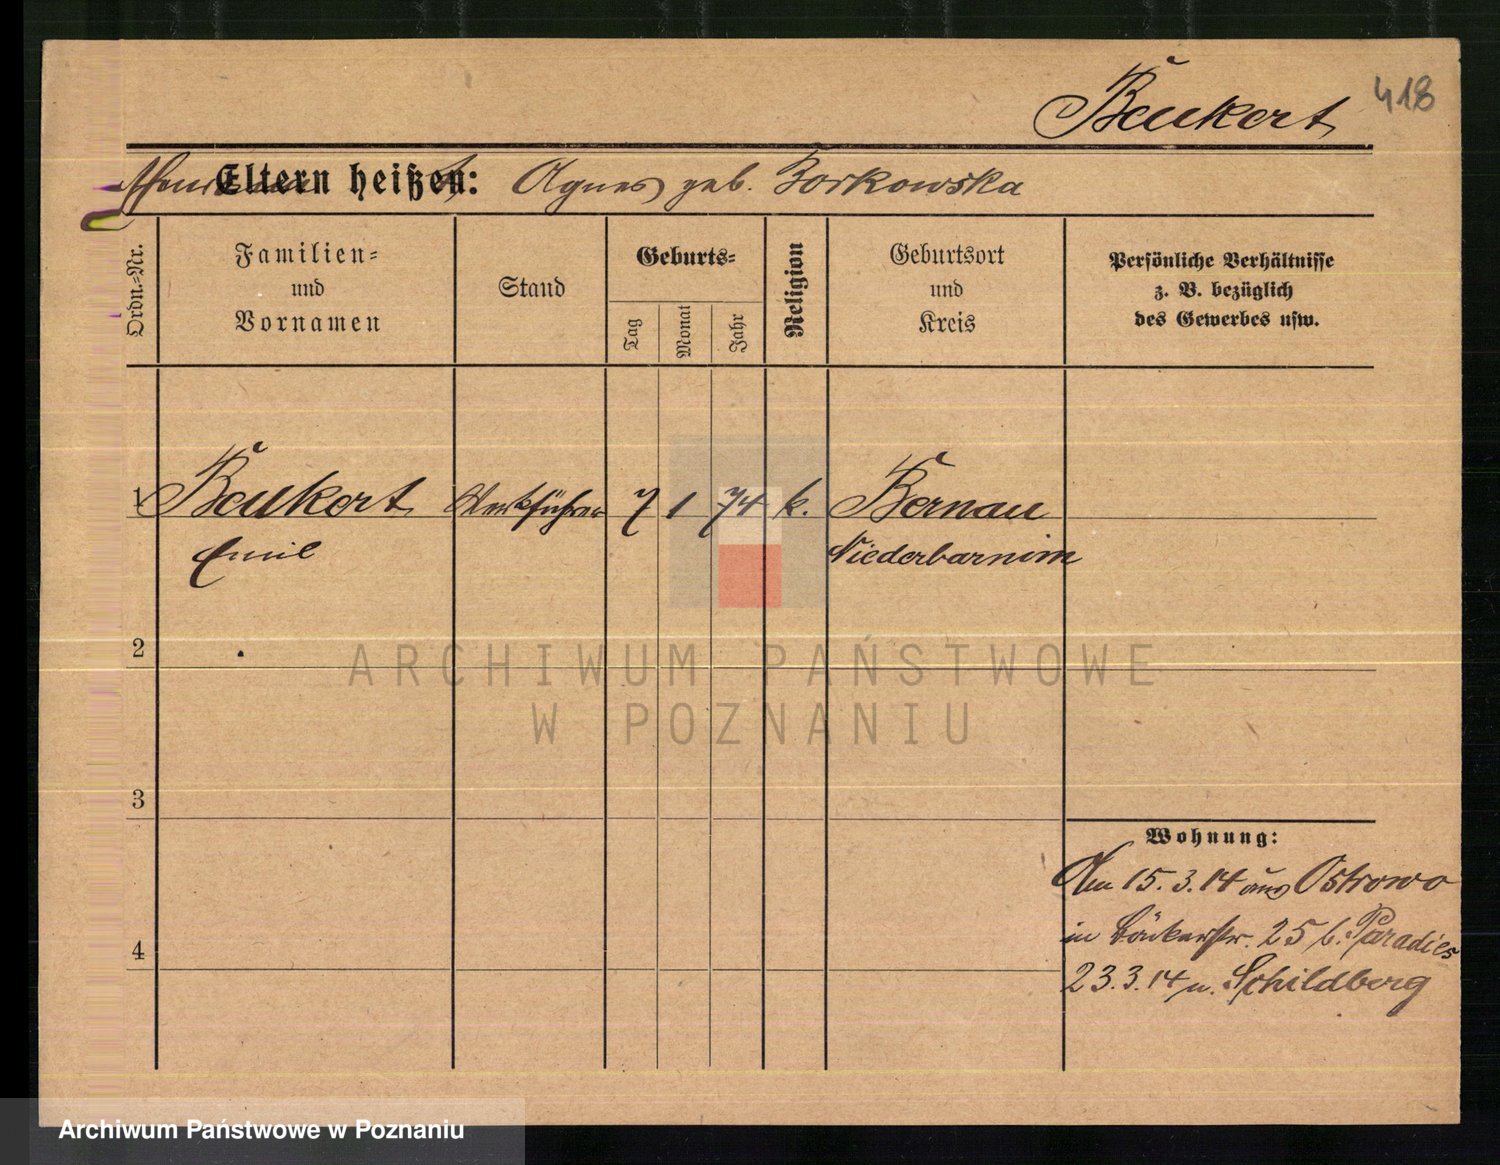 Beŭkert 418
Eltern heißen: Agnes geb. Borkowska
Ordn.-Nr.
Familien-
und
Vornamen
Stand
Geburts-
Tag
Monat
Jahr
Religion
Geburtsort
und
Kreis
Persönliche Verhältnisse
z. B. bezüglich
des Gewerbes usw.
1 Beŭkert Werkführer 7 1 74 k. Bernau
Emil Niederbarnim
2
ARCHIWUM PAŃSTWOWE
W POZNANIU
3
Wohnung:
Am 15.3.14 aus Ostrowo
in Bäckerstr. 25 b. Paradies
4
23.3.14 n. Schildberg
Archiwum Państwowe w Poznaniu